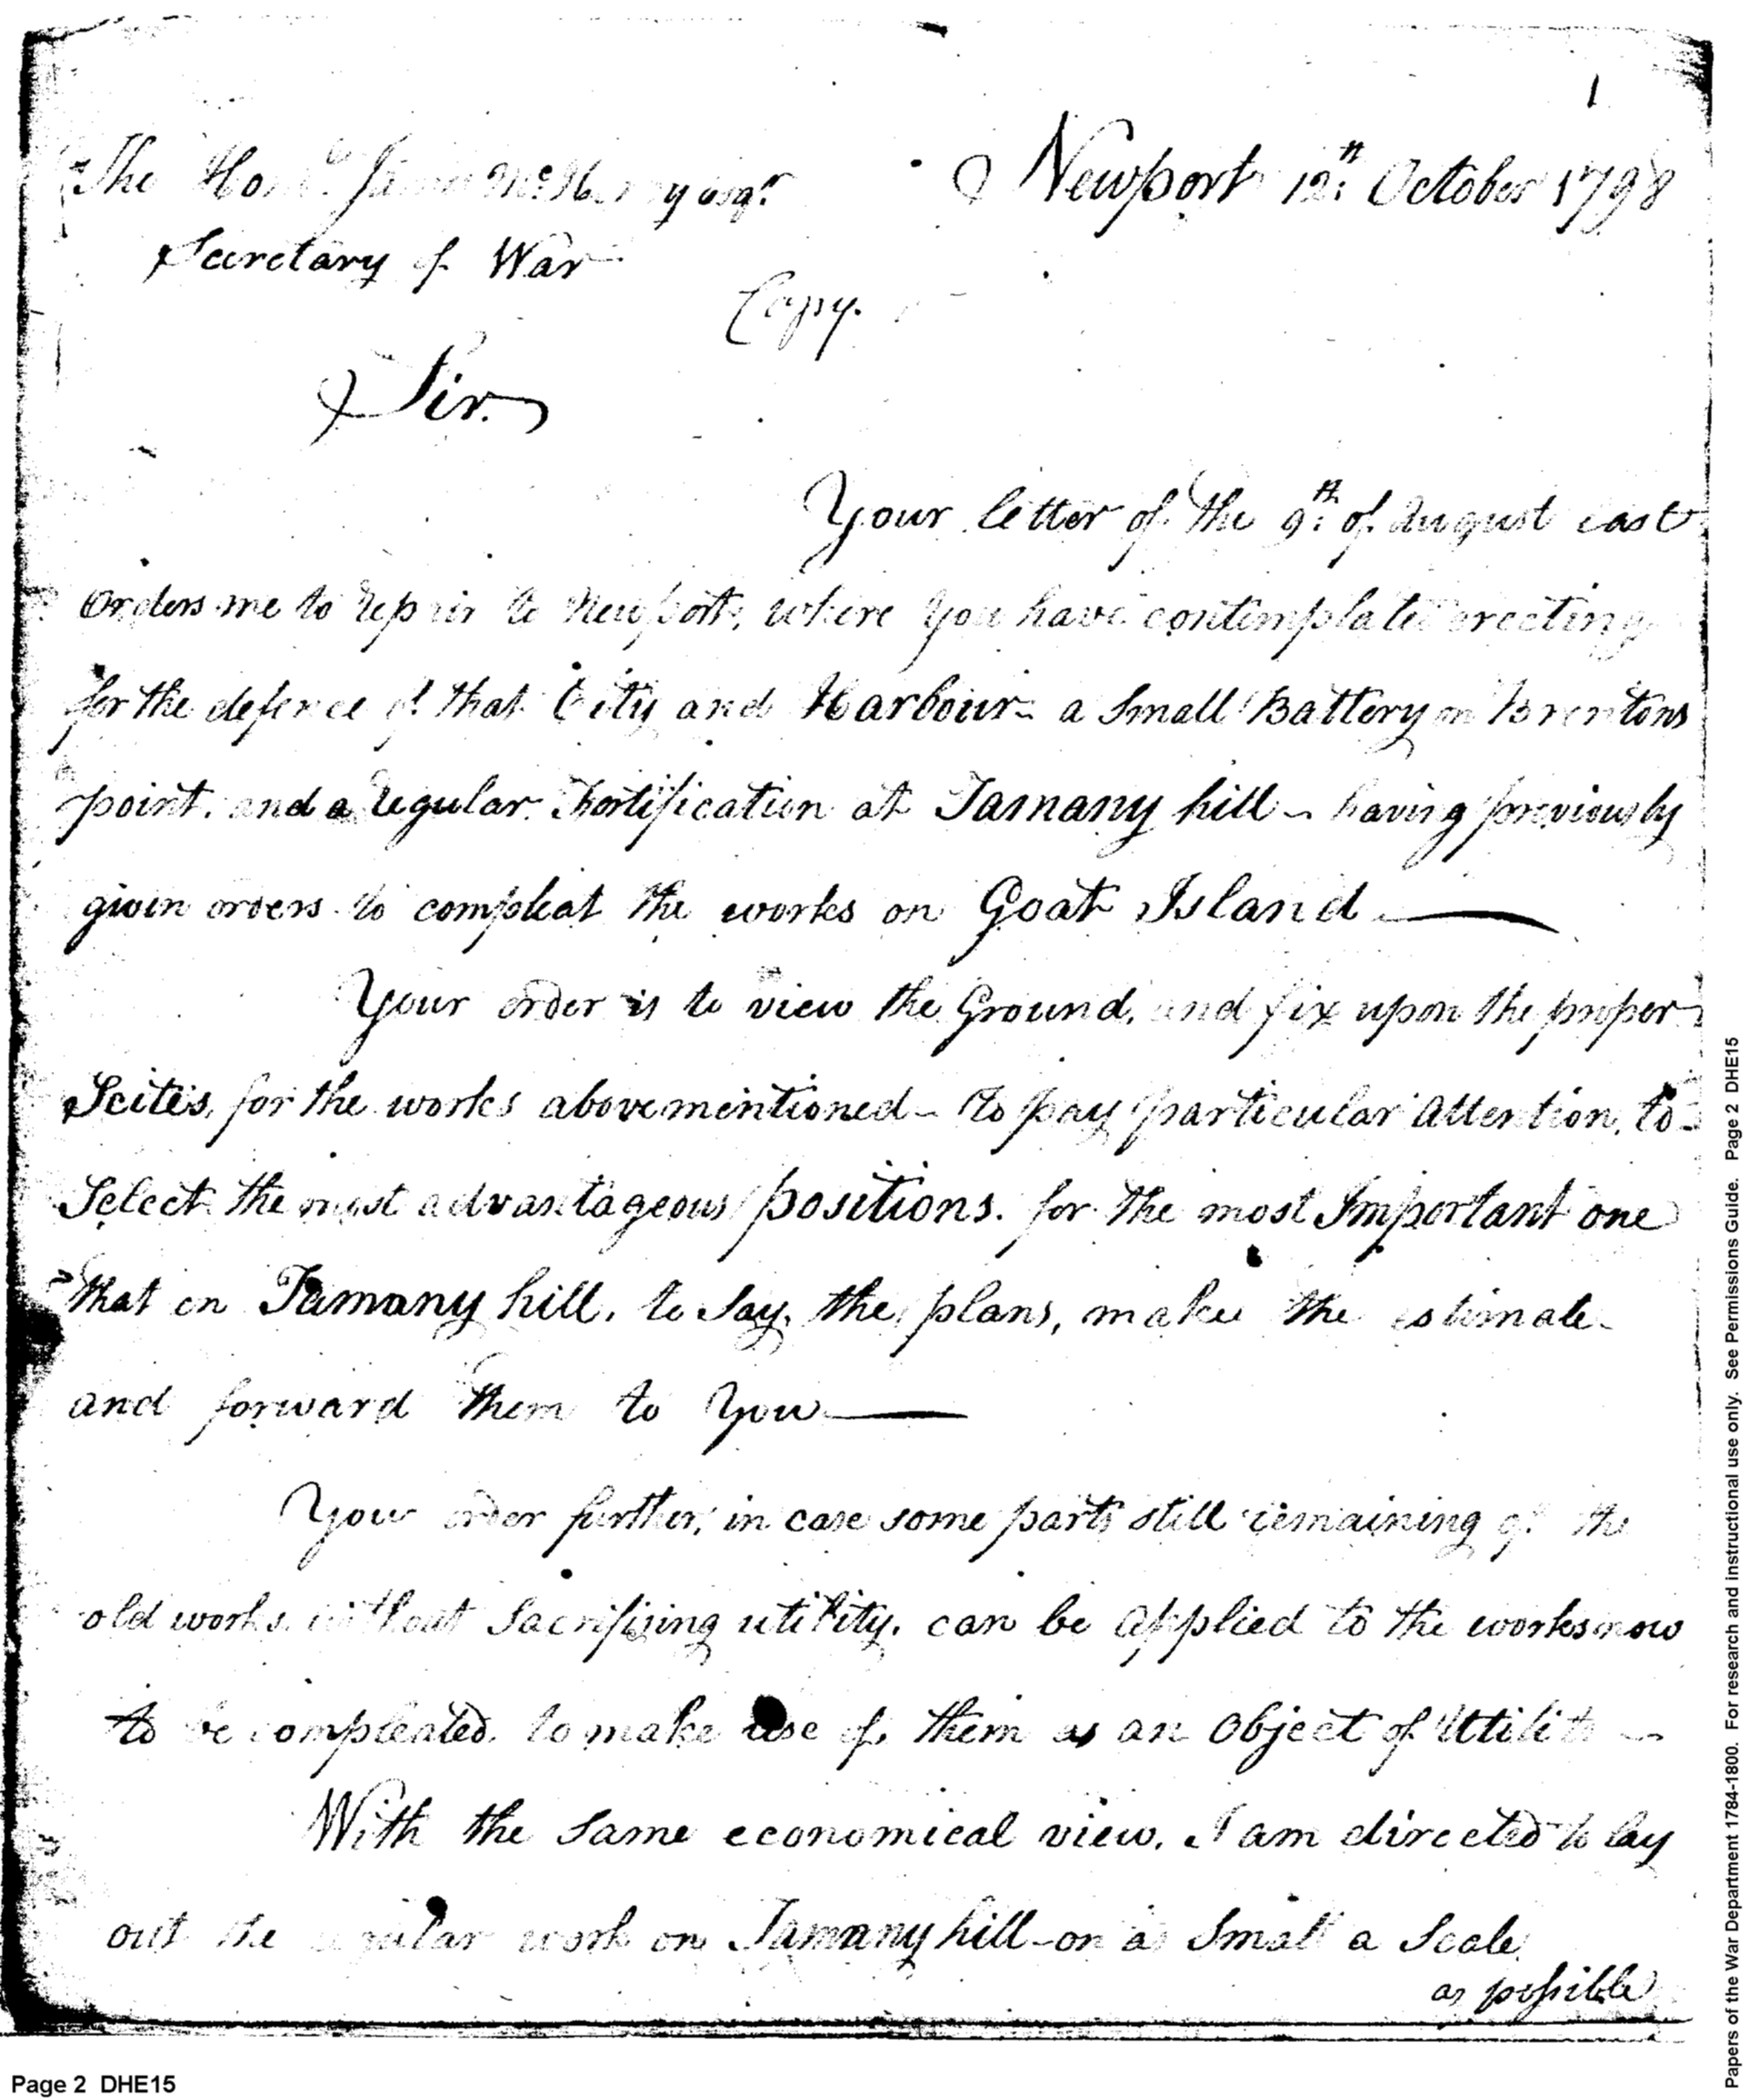 1
The Honble James McHenry esqr
Newport 12th October 1798
Secretary of War
Copy.
Sir.
Your letter of the 9th of August last
orders me to repair to Newport, where you have contemplated erecting
for the defence of that City and Harbour - a Small Battery on Brentons
point. and a regular Fortification at Tamany hill - having previously
given orders to compleat the works on Goat Island —
Your order is to view the Ground, and fix upon the proper
Scites, for the works abovementioned - to pay particular Attention, to
Select the most advantageous positions. for the most Important one
that on Tamany hill, to Say, the plans, make the estimate
and forward them to You —
Your order further, in case some parts still remaining of the
old works, without Sacrifising utility, can be applied to the works now
to be compleated, to make use of them as an Object of Utility -
With the Same economical view, I am directed to lay
out the regular work on Tamany hill - on as Small a Scale
as possible
Page 2 DHE15
Papers of the War Department 1784-1800. For research and instructional use only. See Permissions Guide. Page 2 DHE15